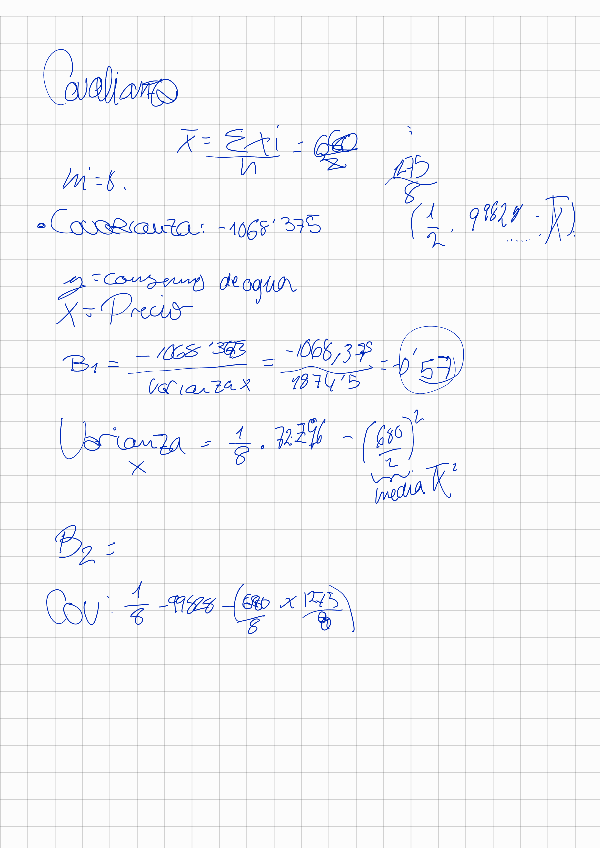 Covarianza
x̄ = Σxi / n = 680 / 8
n = 8.
1275 / 8
• Covarianza: -1068'375
(1/2 · 99828 - x̄)
y = consumo de agua
X = Precio
B1 = -1068'375 / varianza x = -1068,375 / 1874'5 = -0'57
Varianza x = 1/8 · 72.796 - (680/2)²
media x̄²
B2 =
Cov: 1/8 · 99828 - (680/8 x 1275/8)